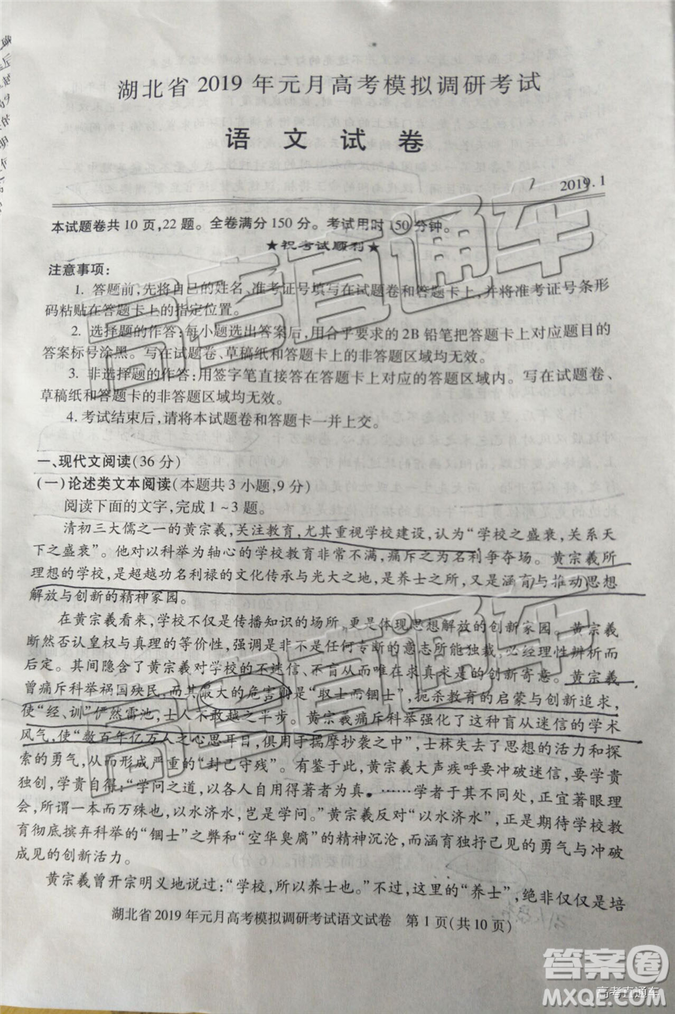 湖北省 2019 年元月高考模拟调研考试
语文试卷
2019.1
本试题卷共 10 页,22 题。全卷满分 150 分。考试用时 150 分钟。
★祝考试顺利★
注意事项:
1. 答题前,先将自己的姓名、准考证号填写在试题卷和答题卡上,并将准考证号条形
码粘贴在答题卡上的指定位置。
2. 选择题的作答:每小题选出答案后,用合乎要求的 2B 铅笔把答题卡上对应题目的
答案标号涂黑。写在试题卷、草稿纸和答题卡上的非答题区域均无效。
3. 非选择题的作答:用签字笔直接答在答题卡上对应的答题区域内。写在试题卷、
草稿纸和答题卡上的非答题区域均无效。
4. 考试结束后,请将本试题卷和答题卡一并上交。
一、现代文阅读(36 分)
(一)论述类文本阅读(本题共 3 小题,9 分)
阅读下面的文字,完成 1~3 题。
清初三大儒之一的黄宗羲,关注教育,尤其重视学校建设,认为“学校之盛衰,关系天
下之盛衰”。他对以科举为轴心的学校教育非常不满,痛斥之为名利争夺场。黄宗羲所
理想的学校,是超越功名利禄的文化传承与光大之地,是养士之所,又是涵育与推动思想
解放与创新的精神家园。
在黄宗羲看来,学校不仅是传播知识的场所,更是体现思想解放的创新家园。黄宗羲
断然否认皇权与真理的等价性,强调是非不是任何专断的意志所能独裁,必经理性辨析而
后定。其间隐含了黄宗羲对学校的不迷信、不盲从而在求真求是的创新奇意。黄宗羲
曾痛斥科举祸国殃民,而其最大的危害则是“驱士而锢士”,扼杀教育的启蒙与创新追求,
使“经、训”俨然雷池,士人不敢越之半步。黄宗羲痛斥科举强化了这种盲从迷信的学术
风气,使“数百年亿万人之心思耳目,俱用于揣摩抄袭之中”,士林失去了思想的活力和探
索的勇气,从而严重的“封己守残”。有鉴于此,黄宗羲大声疾呼要破除迷信,鼓励学界要
独创,学贵自得:“学问之道,以各人自用得着者为真。……学者于其不同处,正宜着眼理
会,所谓一本而万殊也,以水济水,岂是学问!”黄宗羲反对“以水济水”,正是期待学校教
育彻底摈弃科举的“锢士”之弊和“空华臭腐”的精神沉沦,而涵育独抒己见的勇气与冲破
成见的创新活力。
黄宗羲曾开宗明义地说过:“学校,所以养士也。”不过,这里的“养士”,绝非仅仅是培
湖北省 2019 年元月高考模拟调研考试语文试卷 第 1 页(共 10 页)
高考直通车
答案卷
MXQE.COM
高考直通车